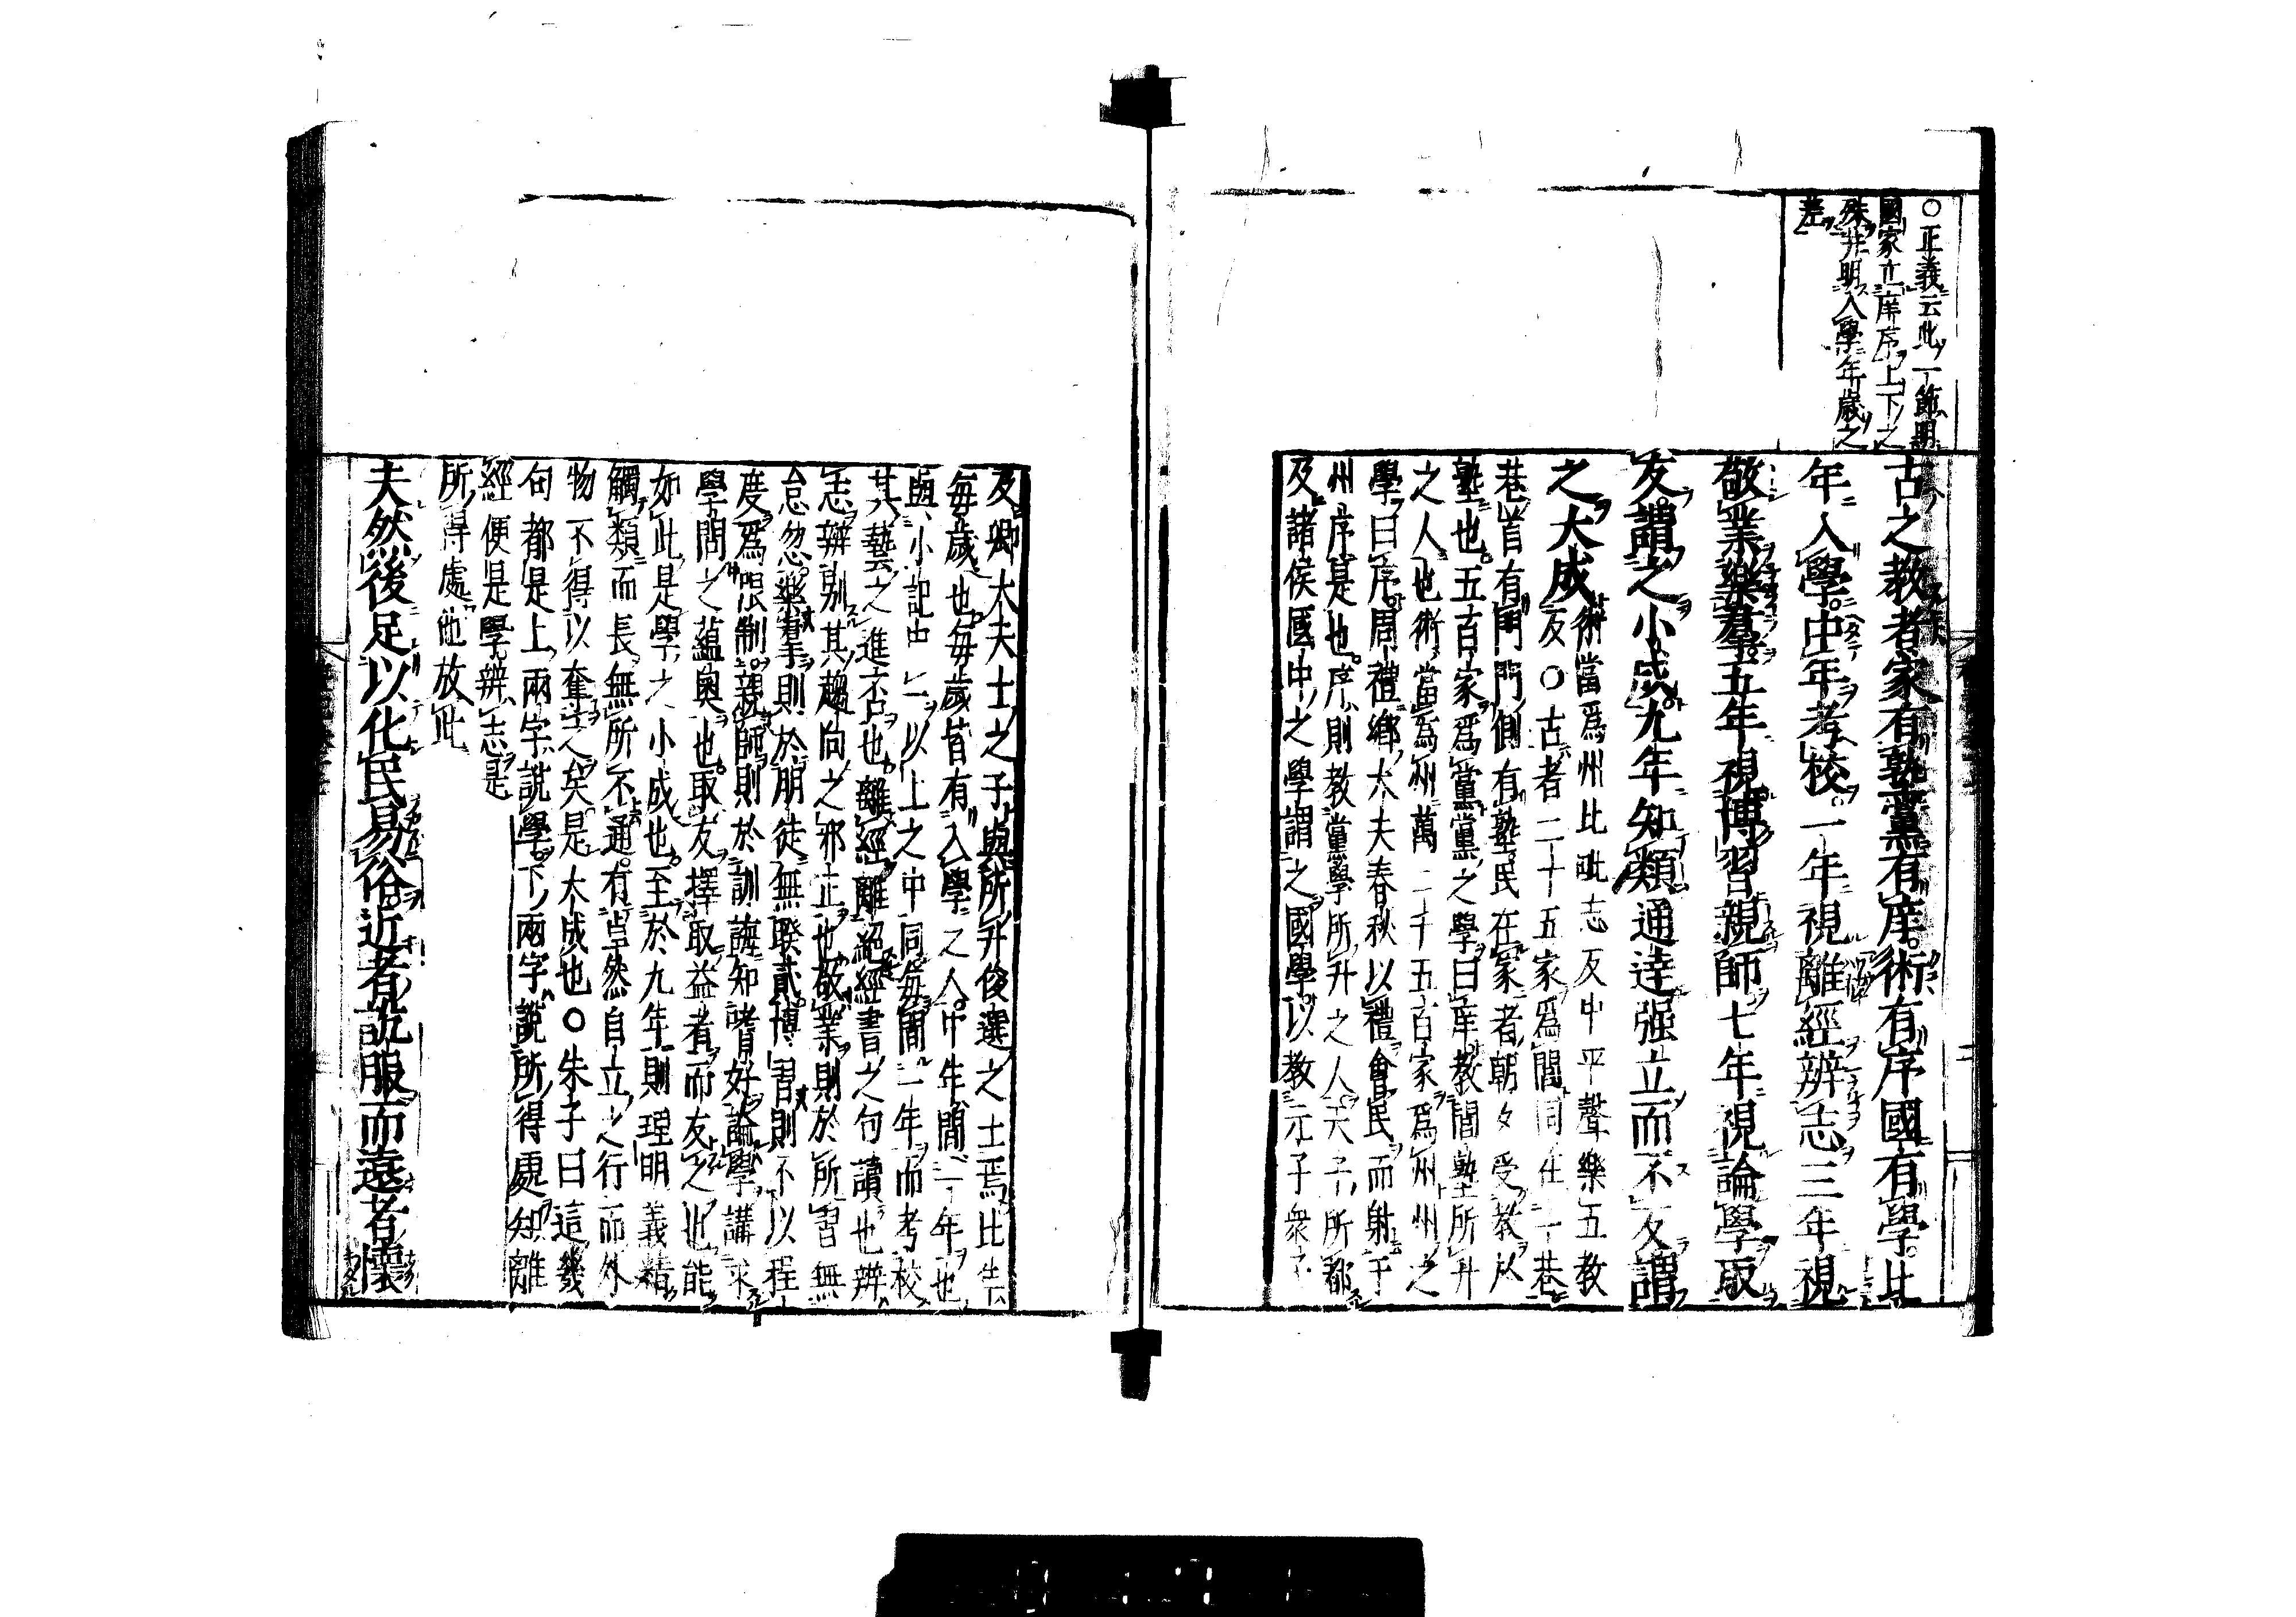 ○正義云此一節明
國家立庠序上下之
殊并明入學年歲之
差
古之教者家有塾黨有庠術有序國有學比
年入學中年考校一年視離經辨志三年視
敬業樂羣五年視博習親師七年視論學取
友謂之小成九年知類通達强立而不反謂
之大成術當爲州比毗志反中平聲樂五教
反○古者二十五家爲閭同在一巷
巷首有門門側有塾民在家者朝夕受教於
塾也五百家爲黨黨之學曰庠教閭塾所升
之人也術當爲州萬二千五百家爲州州之
學曰序周禮鄉大夫春秋以禮會民而射于
州序是也序則教黨學所升之人天子所都
及諸侯國中之學謂之國學以教元子衆子
及卿大夫士之子與所升俊選之士焉比年
每歲也每歲皆有入學之人中年間一年也
與小記中一以上之中同每間一年而考校
其藝之進否也離經離絕經書之句讀也辨
志辨別其趨向之邪正也敬業則於所習無
怠忽樂羣則於朋徒無睽貳博習則不以程
度爲限制親師則於訓誨知嗜好論學講求
學問之蘊奧也取友擇取益者而友之也能
如此是學之小成也至於九年則理明義精
觸類而長無所不通有卓然自立之行而外
物不得以奪之矣是大成也○朱子曰這幾
句都是上兩字說學下兩字說所得處如離
經便是學辨志是
所得處他放此
夫然後足以化民易俗近者說服而遠者懷